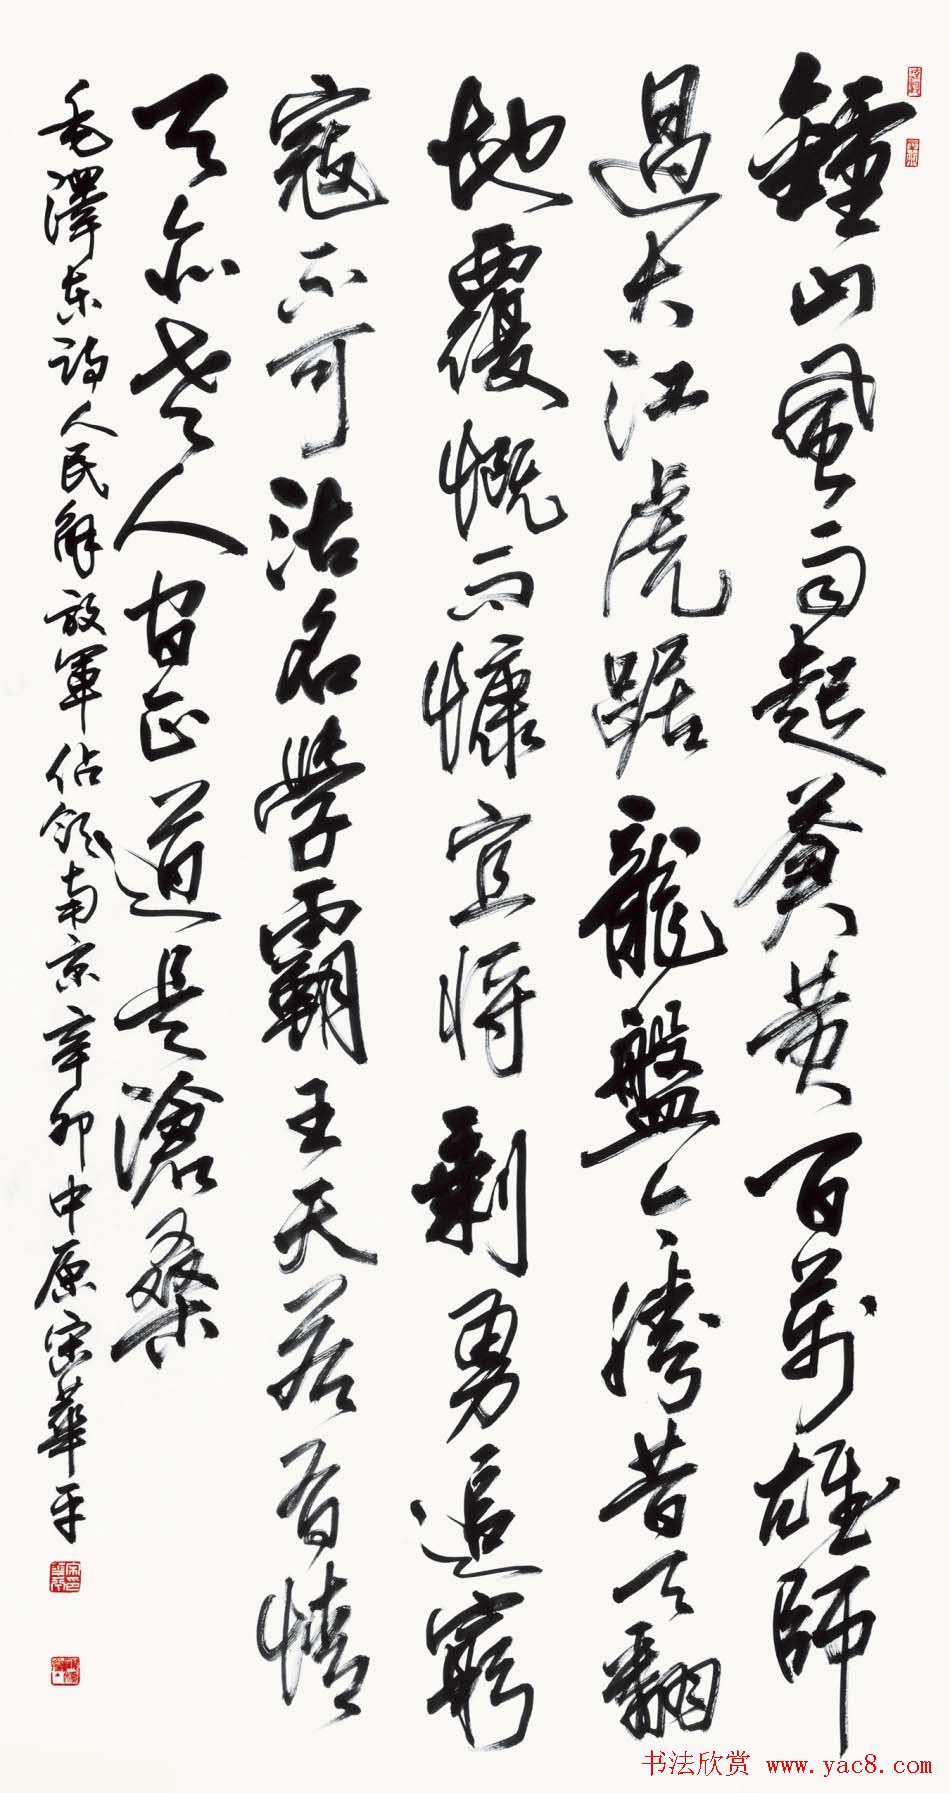 鍾山風雨起蒼黃百萬雄師
過大江虎踞龍盤今勝昔天翻
地覆慨而慷宜將剩勇追窮
寇不可沽名學霸王天若有情
天亦老人間正道是滄桑
毛澤東詩人民解放軍佔領南京辛卯中原宋華平
书法欣赏 www.yac8.com